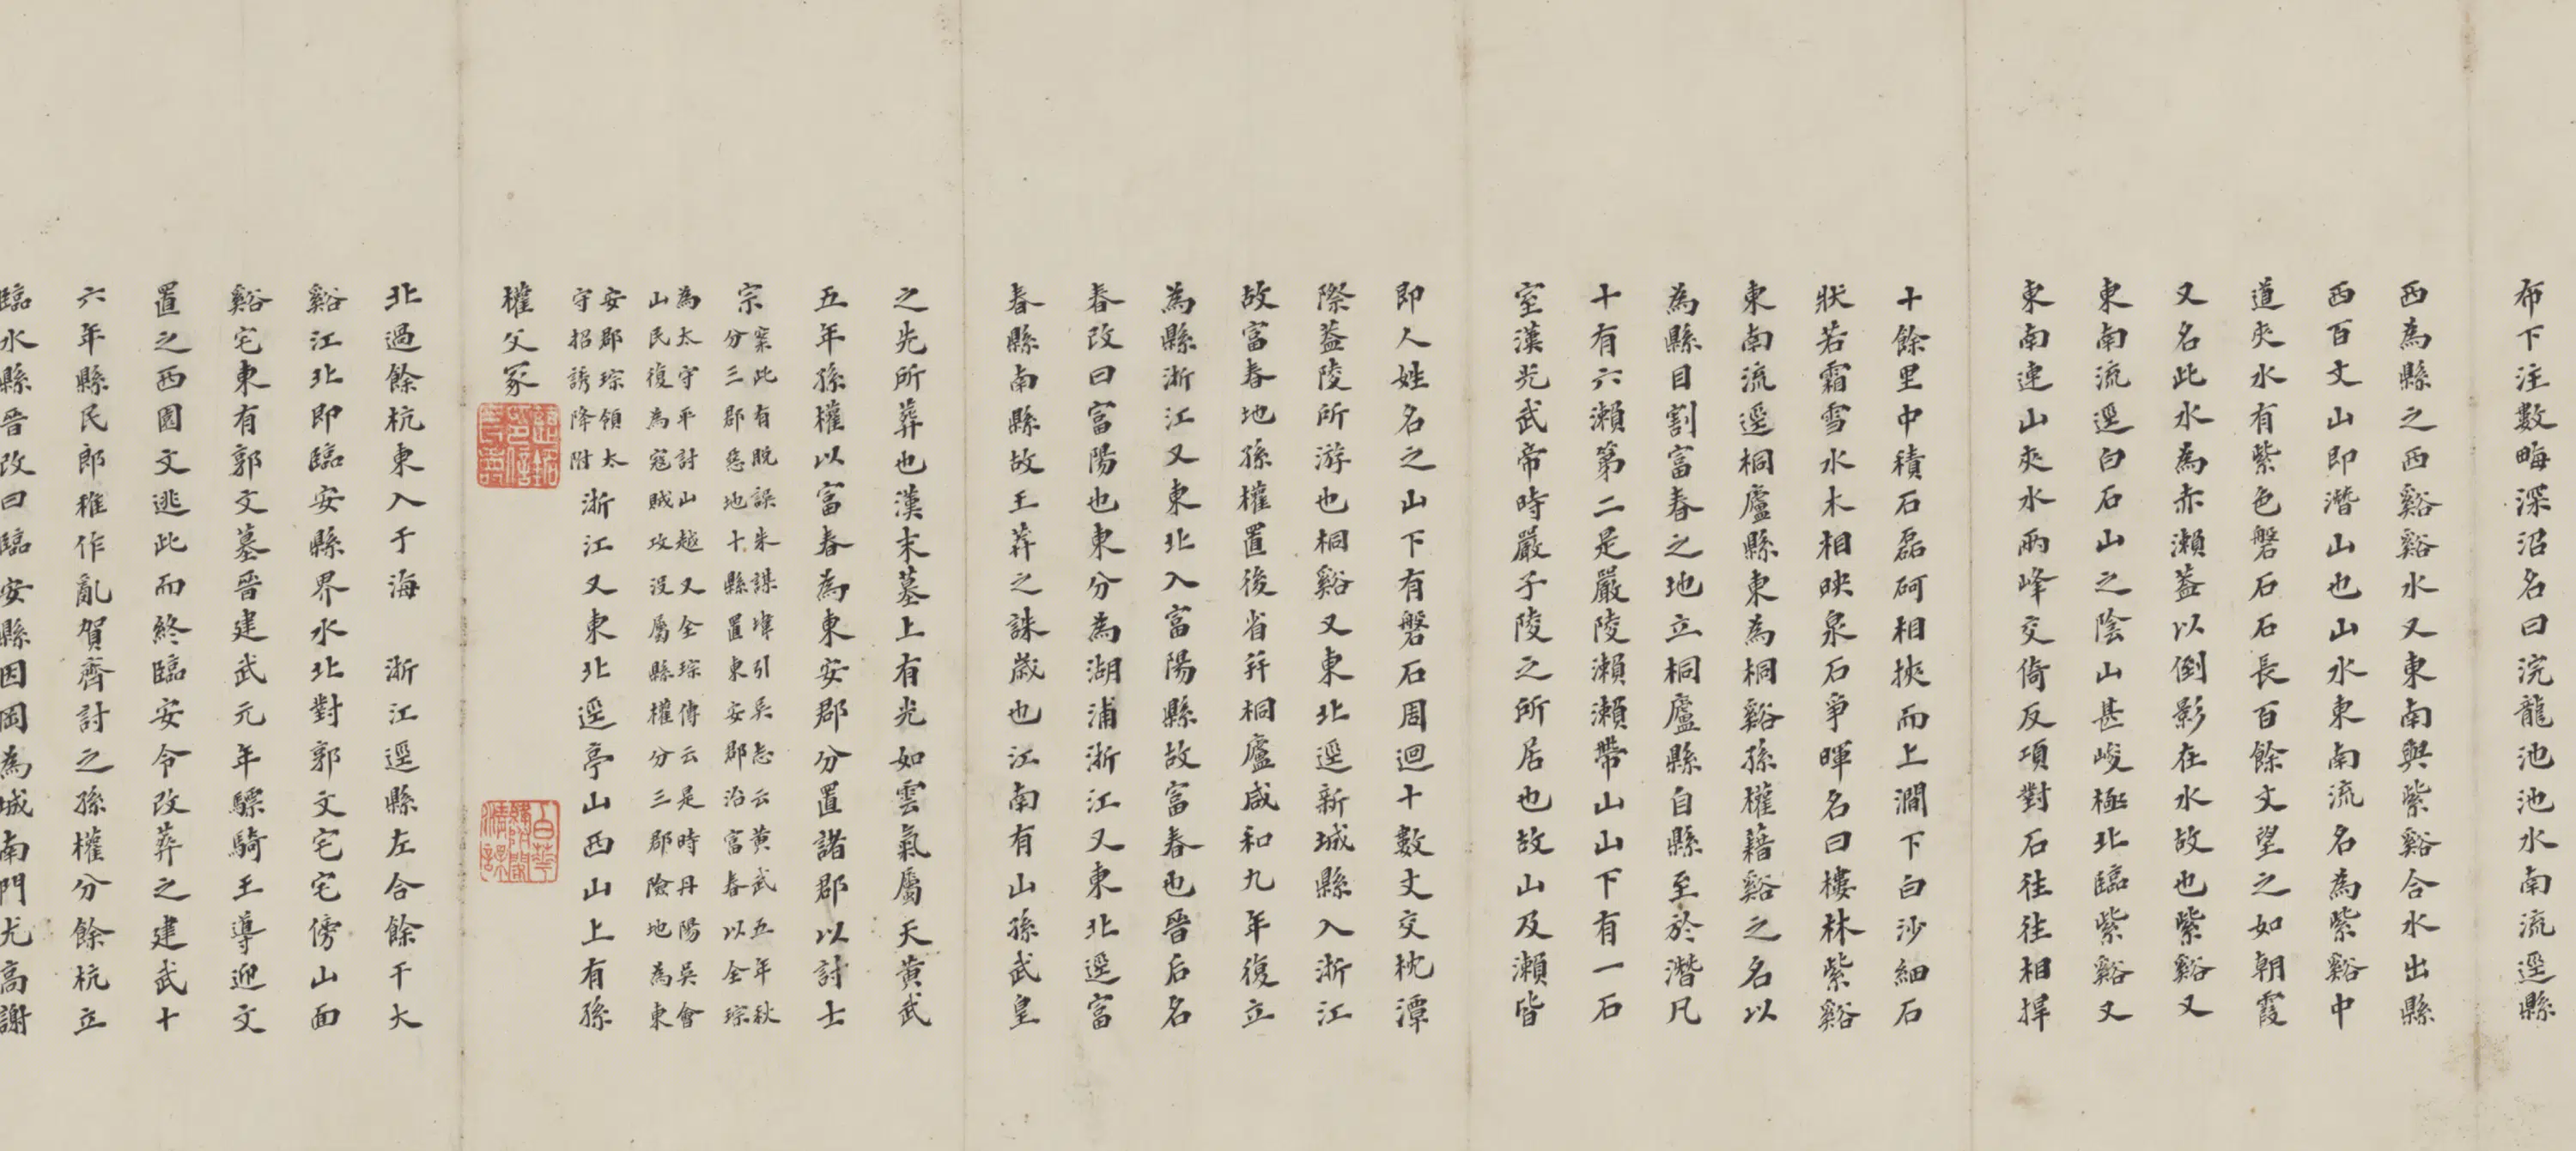 布下注數畮深沼名曰浣龍池池水南流逕縣
西為縣之西谿谿水又東南與紫谿合水出縣
西百丈山即潛山也山水東南流名為紫谿中
道夾水有紫色磐石石長百餘丈望之如朝霞
又名此水為赤瀨蓋以倒影在水故也紫谿又
東南流逕白石山之陰山甚峻極北臨紫谿又
東南連山夾水兩峰交倚反項對石往往相捍
十餘里中積石磊砢相挾而上澗下白沙細石
狀若霜雪水木相映泉石爭暉名曰樓林紫谿
東南流逕桐廬縣東為桐谿孫權藉谿之名以
為縣目割富春之地立桐廬縣自縣至於潛凡
十有六瀨第二是嚴陵瀨瀨帶山山下有一石
室漢光武帝時嚴子陵之所居也故山及瀨皆
即人姓名之山下有磐石周迴十數丈交枕潭
際蓋陵所游也桐谿又東北逕新城縣入浙江
故富春地孫權置後省并桐廬咸和九年復立
為縣浙江又東北入富陽縣故富春也晉后名
春改曰富陽也東分為湖浦浙江又東北逕富
春縣南縣故王莽之誅歲也江南有山孫武皇
之先所葬也漢末墓上有光如雲氣屬天黃武
五年孫權以富春為東安郡分置諸郡以討士
宗
案此有脫誤朱謀㙔引吳志云黃武五年秋
分三郡惡地十縣置東安郡治富春以全琮
為太守平討山越又全琮傳云是時丹陽吳會
山民復為寇賊攻沒屬縣權分三郡險地為東
安郡琮領太
守招誘降附
浙江又東北逕亭山西山上有孫
權父冢
北過餘杭東入于海 浙江逕縣左合餘干大
谿江北即臨安縣界水北對郭文宅宅傍山面
谿宅東有郭文墓晉建武元年驃騎王導迎文
置之西園文逃此而終臨安令改葬之建武十
六年縣民郎稚作亂賀齊討之孫權分餘杭立
臨水縣晉改曰臨安縣因岡為城南門尤高謝